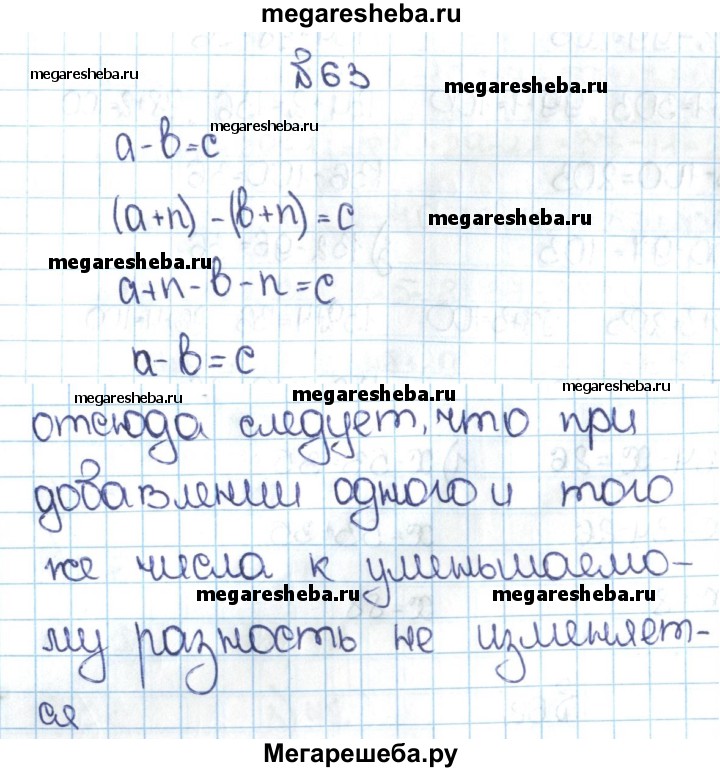 megaresheba.ru
№63
megaresheba.ru
megaresheba.ru
megaresheba.ru
a-в=c
(a+n)-(в+n)=c
megaresheba.ru
megaresheba.ru
a+n-в-n=c
a-в=c
megaresheba.ru
megaresheba.ru
megaresheba.ru
отсюда следует, что при
добавлении одного и того
же числа к уменьшаемо-
megaresheba.ru
megaresheba.ru
му разность не изменяет-
ся
Мегарешеба.ру